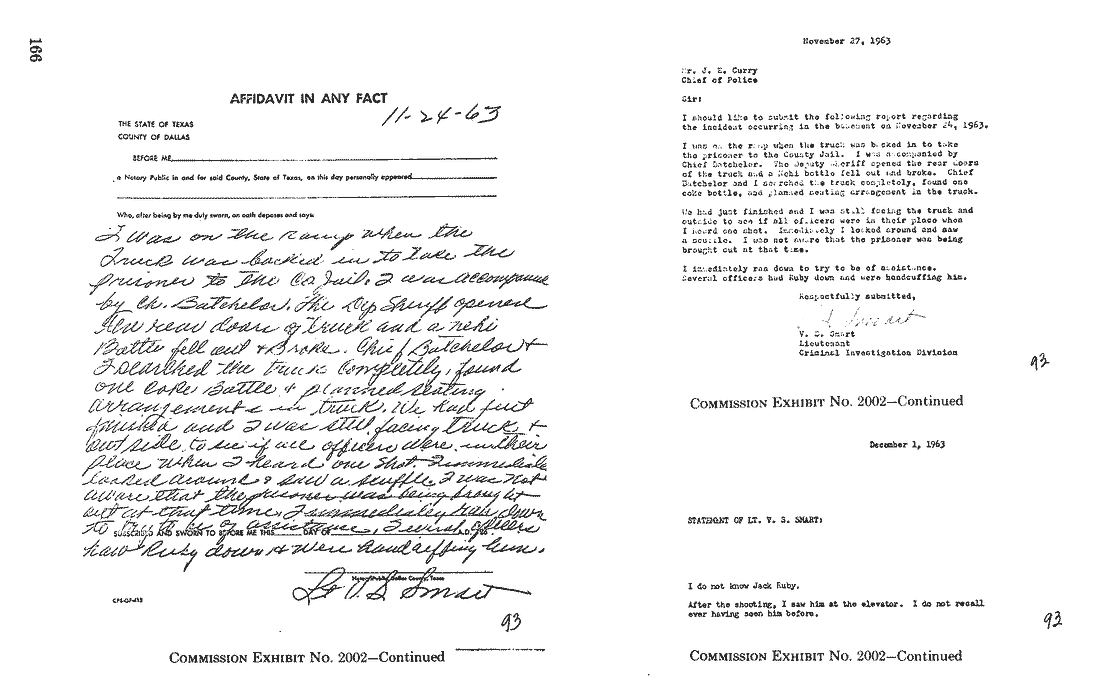 166
AFFIDAVIT IN ANY FACT
11-24-63
THE STATE OF TEXAS
COUNTY OF DALLAS
BEFORE ME
a Notary Public in and for said County, State of Texas, on this day personally appeared
Who, after being by me duly sworn, on oath deposes and says:
I was on the ramp when the
Truck was backed in to take the
prisoner to the Co Jail. I was accompanied
by Ch. Batchelor. The Dep Sheriff opened
the rear doors of truck and a nehi
Bottle fell out & Broke. Chief Batchelor &
I searched the truck completely, found
one Coke Bottle & planned seating
arrangements in truck. We had just
finished and I was still facing truck &
out side to see if all officers were in their
place when I heard one shot. I immediately
looked around & saw a scuffle. I was not
aware that the prisoner was being brought
out at that time. I immediately ran down
to try to be of assistance. Several officers
SUBSCRIBED AND SWORN TO BEFORE ME THIS DAY OF A.D. 196
had Ruby down & were handcuffing him.
Notary Public, Dallas County, Texas
Lt V S Smart
CPS-GF-413
93
COMMISSION EXHIBIT No. 2002—Continued
November 27, 1963
Mr. J. E. Curry
Chief of Police
Sir:
I should like to submit the following report regarding
the incident occurring in the basement on November 24, 1963.
I was on the ramp when the truck was backed in to take
the prisoner to the County Jail. I was accompanied by
Chief Batchelor. The Deputy Sheriff opened the rear doors
of the truck and a Nehi bottle fell out and broke. Chief
Batchelor and I searched the truck completely, found one
coke bottle, and planned seating arrangement in the truck.
We had just finished and I was still facing the truck and
outside to see if all officers were in their place when
I heard one shot. Immediately I looked around and saw
a scuffle. I was not aware that the prisoner was being
brought out at that time.
I immediately ran down to try to be of assistance.
Several officers had Ruby down and were handcuffing him.
Respectfully submitted,
Smart
V. S. Smart
Lieutenant
Criminal Investigation Division
93
COMMISSION EXHIBIT No. 2002—Continued
December 1, 1963
STATEMENT OF LT. V. S. SMART:
I do not know Jack Ruby.
After the shooting, I saw him at the elevator. I do not recall
ever having seen him before.
93
COMMISSION EXHIBIT No. 2002—Continued